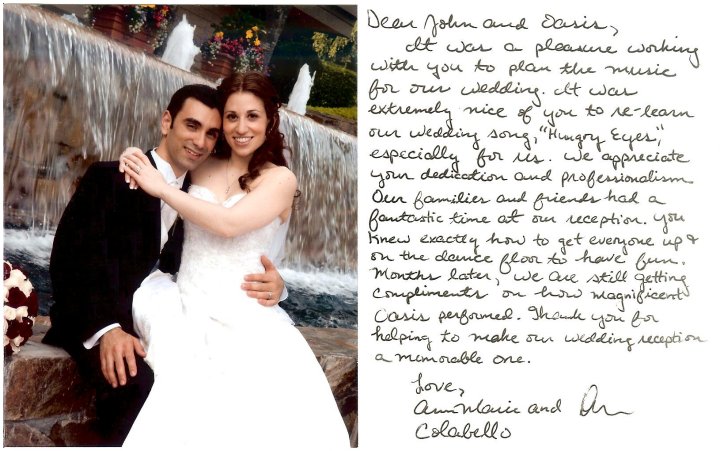 Dear John and Oasis,
It was a pleasure working
with you to plan the music
for our wedding. It was
extremely nice of you to re-learn
our wedding song, "Hungry Eyes",
especially for us. We appreciate
your dedication and professionalism.
Our families and friends had a
fantastic time at our reception. You
knew exactly how to get everyone up &
on the dance floor to have fun.
Months later, we are still getting
compliments on how magnificent
Oasis performed. Thank you for
helping to make our wedding reception
a memorable one.
Love,
AnnMarie and
Colabello